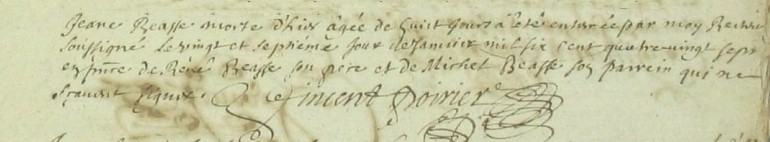 Jeane Beasse morte d'hier âgée de huict jours a été enterrée par moy Recteur
soussigné le vingt et septiéme jour de janvier mil six cent quatre vingt sept
en pnce de René Beasse son pere et de Michel Beasse son parrein qui ne
sçavent signer. Vincent Poirier